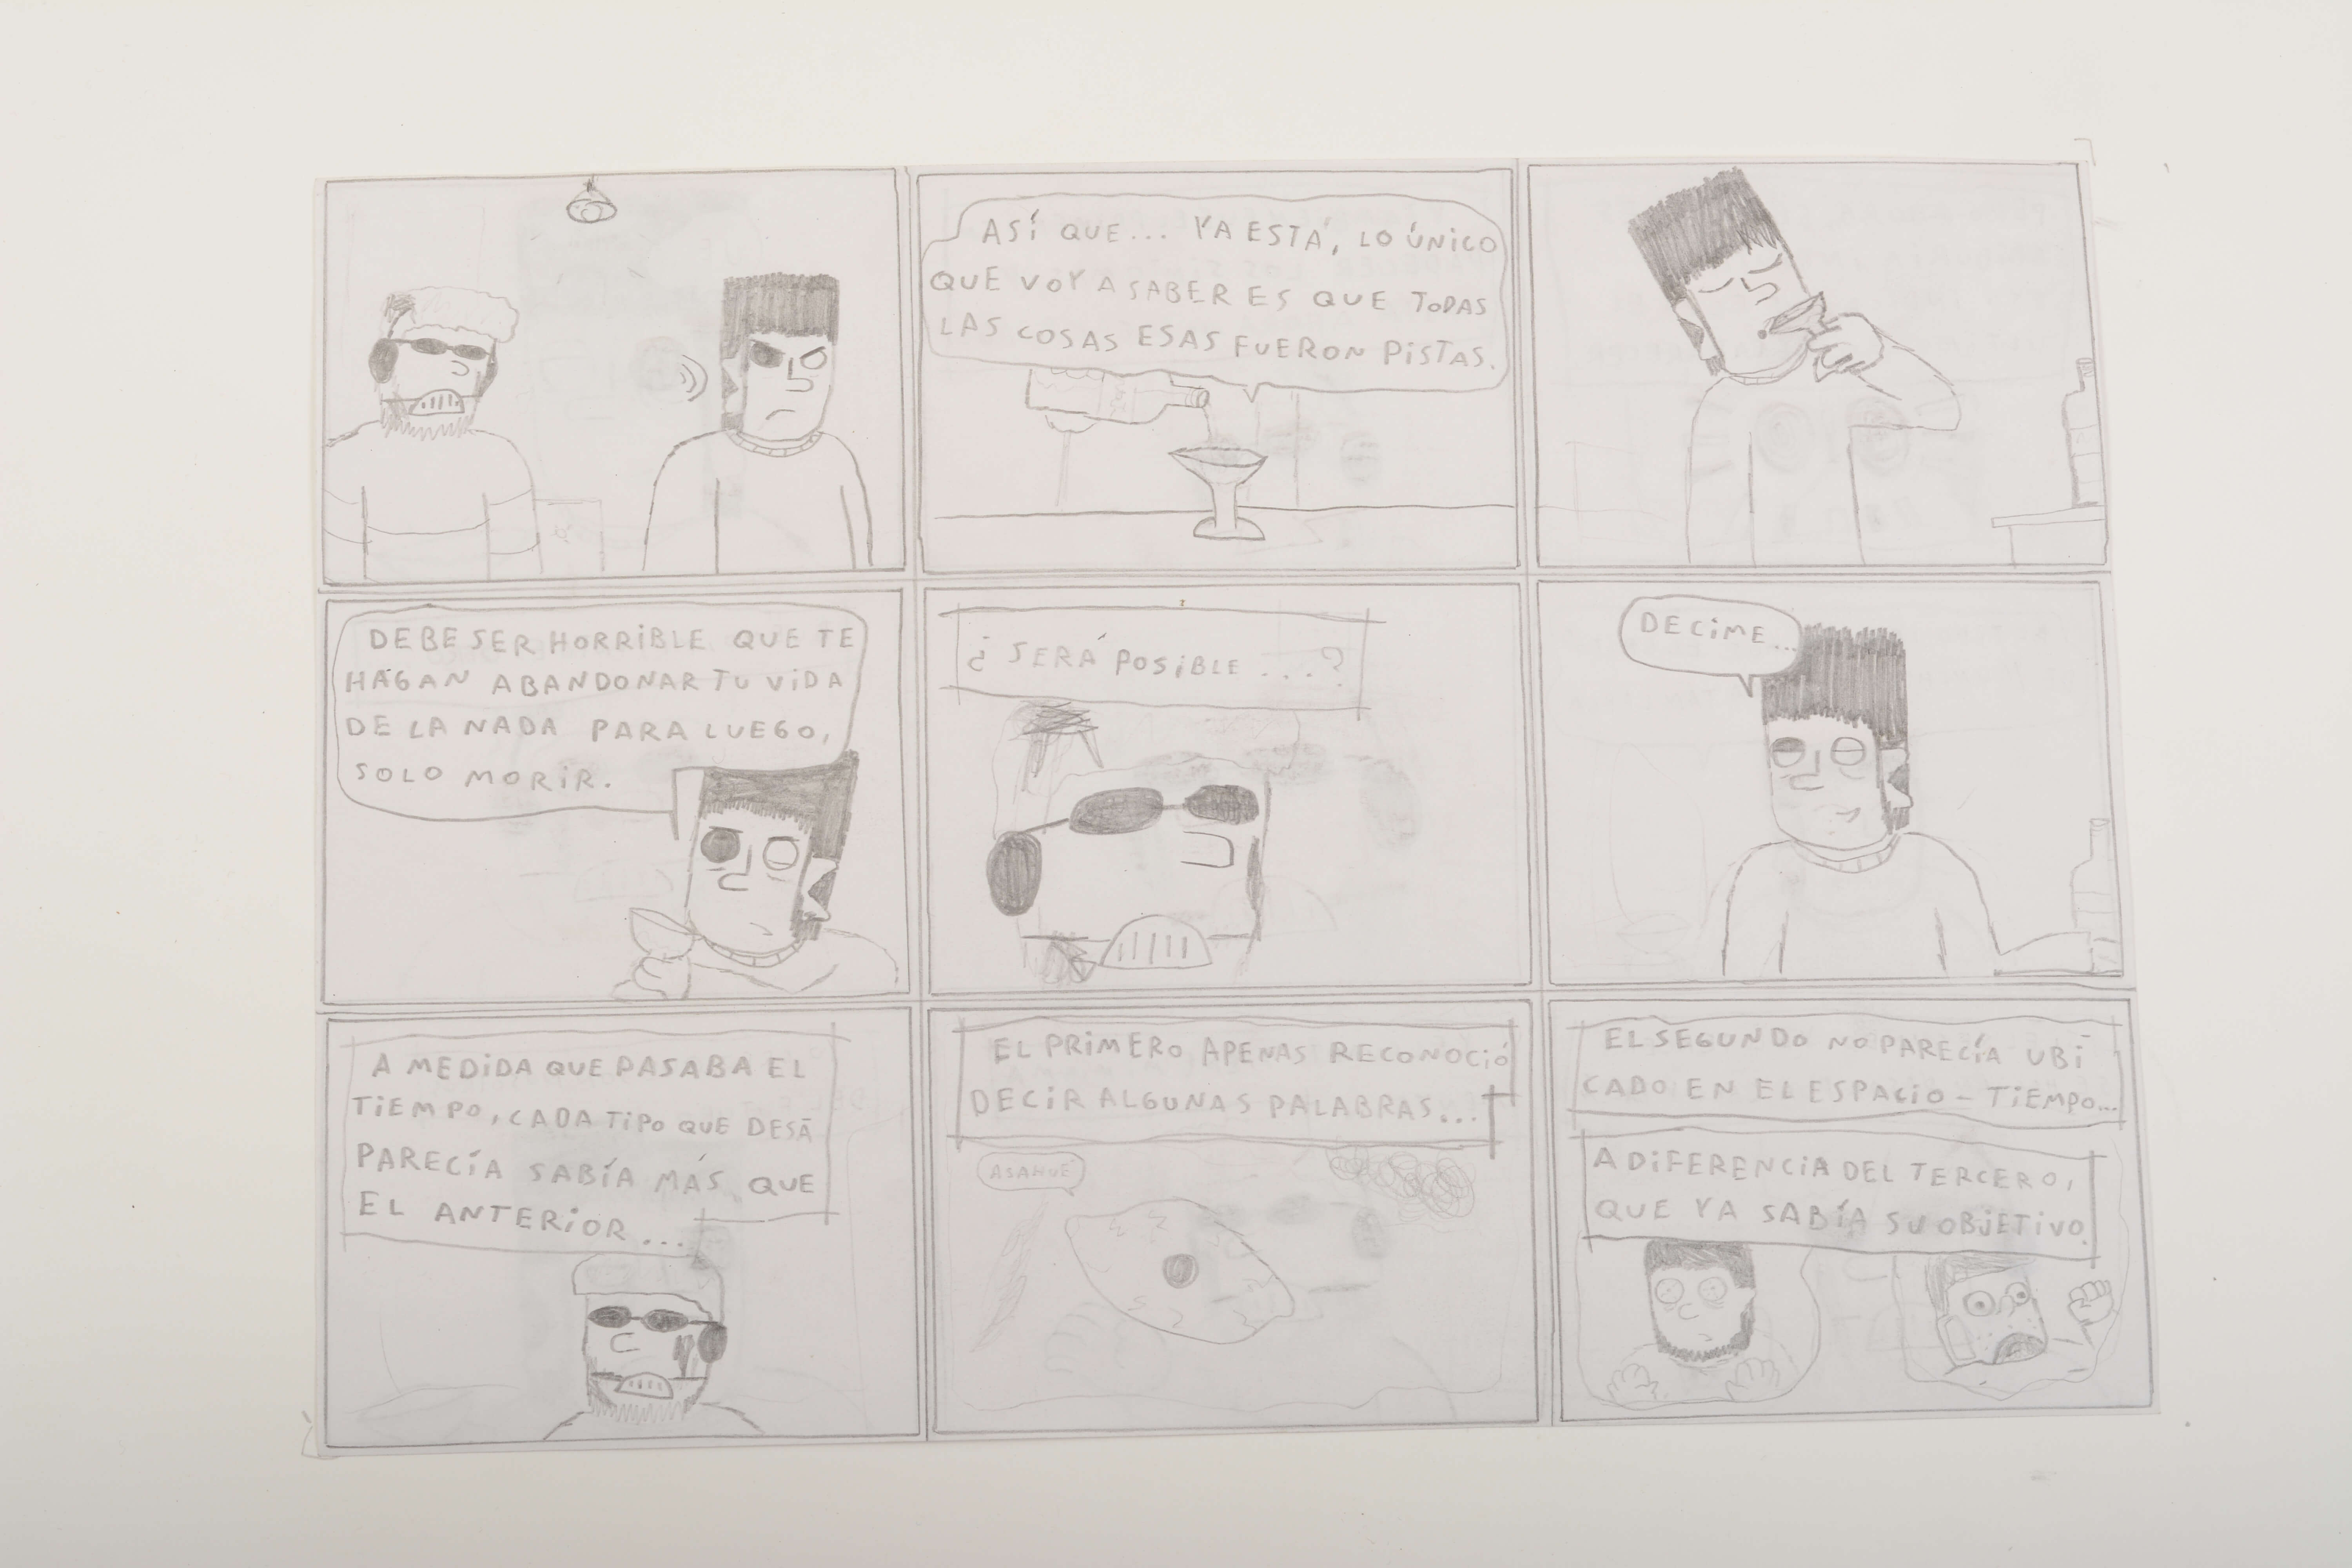 ASÍ QUE... YA ESTÁ, LO ÚNICO
QUE VOY A SABER ES QUE TODAS
LAS COSAS ESAS FUERON PISTAS.
DEBE SER HORRIBLE QUE TE
HAGAN ABANDONAR TU VIDA
DE LA NADA PARA LUEGO,
SOLO MORIR.
¿SERÁ POSIBLE....?
DECIME...
A MEDIDA QUE PASABA EL
TIEMPO, CADA TIPO QUE DESA
PARECÍA SABÍA MÁS QUE
EL ANTERIOR...
EL PRIMERO APENAS RECONOCIÓ
DECIR ALGUNAS PALABRAS...
EL SEGUNDO NO PARECÍA UBI
CADO EN EL ESPACIO - TIEMPO...
A DIFERENCIA DEL TERCERO,
QUE YA SABÍA SU OBJETIVO.